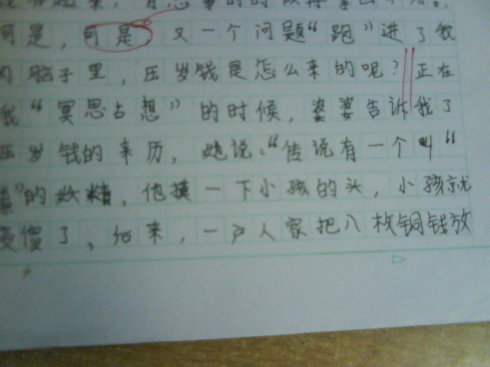 可是，可是，又一个问题“跑”进了我
脑子里，压岁钱是怎么来的呢？正在
我“冥思古想”的时候，婆婆告诉我了
压岁钱的来历，她说：“传说有一个叫“
”的妖精，他摸一下小孩的头，小孩就
变傻了，后来，一户人家把八枚铜钱放